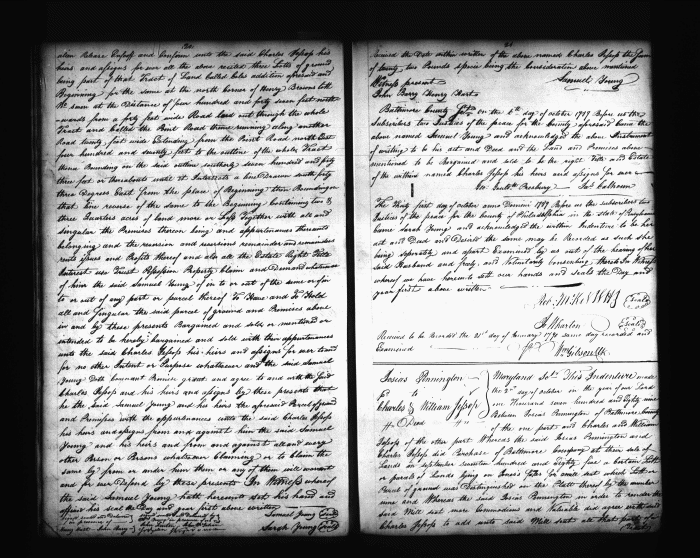 alien Release Enfeoff and Confirm unto the said Charles Jessop his
heirs and assigns for ever all the above recited three Lotts of ground
being part of that Tract of Land called Coles addition aforesaid and
Beginning for the same at the north corner of Henry Browns lott
No seven at the Distance of four hundred and forty seven feet north
wards from a forty feet wide Road laid out through the whole
Tract and called the Point Road thence running along another
Road twenty feet wide Extending from the Point Road north East
four hundred and seventy feet to the outline of the whole Tract
thence Bounding on the said outline southerly seven hundred and forty
three feet or thereabouts until it Intersects a line Drawn south forty
three Degrees East from the place of Beginning then Bounding on
that line reverse of the same to the Beginning Containing two &
three Quarters acres of land more or less Together with all and
singular the Premises thereon being and appurtenances thereunto
belonging and the reversion and reversions remainder and remainders
rents issues and Profits thereof and also all the Estate Right Title
Interest use Trust Possession Property claim and Demand whatsoever
of him the said Samuel Young of in to or out of the same or for
to or out of any part or parcel thereof To Have and To Hold
all and singular the said parcel of ground and Premises above
in and by these presents Bargained and sold or mentioned or
intended to be hereby bargained and sold with their appurtenances
unto the said Charles Jessop his heirs and assigns for ever to and
for no other Intent or Purpose whatsoever and the said Samuel
Young Doth Covenant Promise grant and agree to and with the said
Charles Jessop and his heirs and assigns by these presents that
he the said Samuel Young and his heirs the aforesaid Parcel of ground
and Premises with the appurtenances unto the said Charles Jessop
his heirs and assigns from and against him the said Samuel
Young and his heirs and from and against all and every
other Person or Persons whatsoever Claiming or to claim the
same by from or under him them or any of them will warrant
and for ever Defend by these presents In Witness whereof
the said Samuel Young hath hereunto set his hand and
affixed his seal the Day and year first above written
Samuel Young (Seal)
Sarah Young (Seal)
Received the Date within written of the above named Charles Jessop the Sum
of twenty two Pounds specie being the consideration above mentioned
Witness present
Samuel Young
John Berry Henry Hart
Baltimore County Sct on the 6th day of october 1789 Before us the
Subscribers two Justices of the peace for the county aforesaid came the
above named Samuel Young and acknowledged the above Instrument
of writing to be his act and Deed and the Land and Premises above
mentioned to be Bargained and sold to be the right Title and Estate
of the within named Charles Jessop his heirs and assigns for ever
Geo Gouldh Presbury Jas Calhoun
The thirty first day of october anno Domini 1789 Before us the subscribers two
Justices of the peace for the county of Philadelphia in the state of Pennsylvania
came Sarah Young and acknowledged the within Indenture to be her
act and Deed and Desired the same may be Recorded as such she
being seperately and apart Examined by us out of the hearing of her
said Husband and freely and Voluntarily consenting thereto In Witness
whereof we have hereunto set our hands and seals the Day and
year first above written
(Seal)
Wharton (Seal)
Received to be Recorded the 21st day of January 1790 same day recorded and
Examined
Wm Gibson Clk
Josias Pennington
to
Charles & William Jessop
Deed
Maryland Sct This Indenture made
the 2nd day of october in the year of our Lord
one Thousand seven hundred and Eighty nine
Between Josias Pennington of Baltimore County
of the one part and Charles and William
Jessops of the other part Whereas the said Josias Pennington and
Charles Jessop did Purchase of Baltimore Company at their sale of
Lands in september seventeen hundred and Eighty five a certain Lott
or parcel of Lands lying on Jones's falls for a mill seat which Lott or
Parcel of ground was Distinguished on the Platt thereof by the number
nine and Whereas the said Josias Pennington in order to render the
said Mill seat more commodious and Valuable did agree with said
Charles Jessop to add unto said Mill seat all that part of